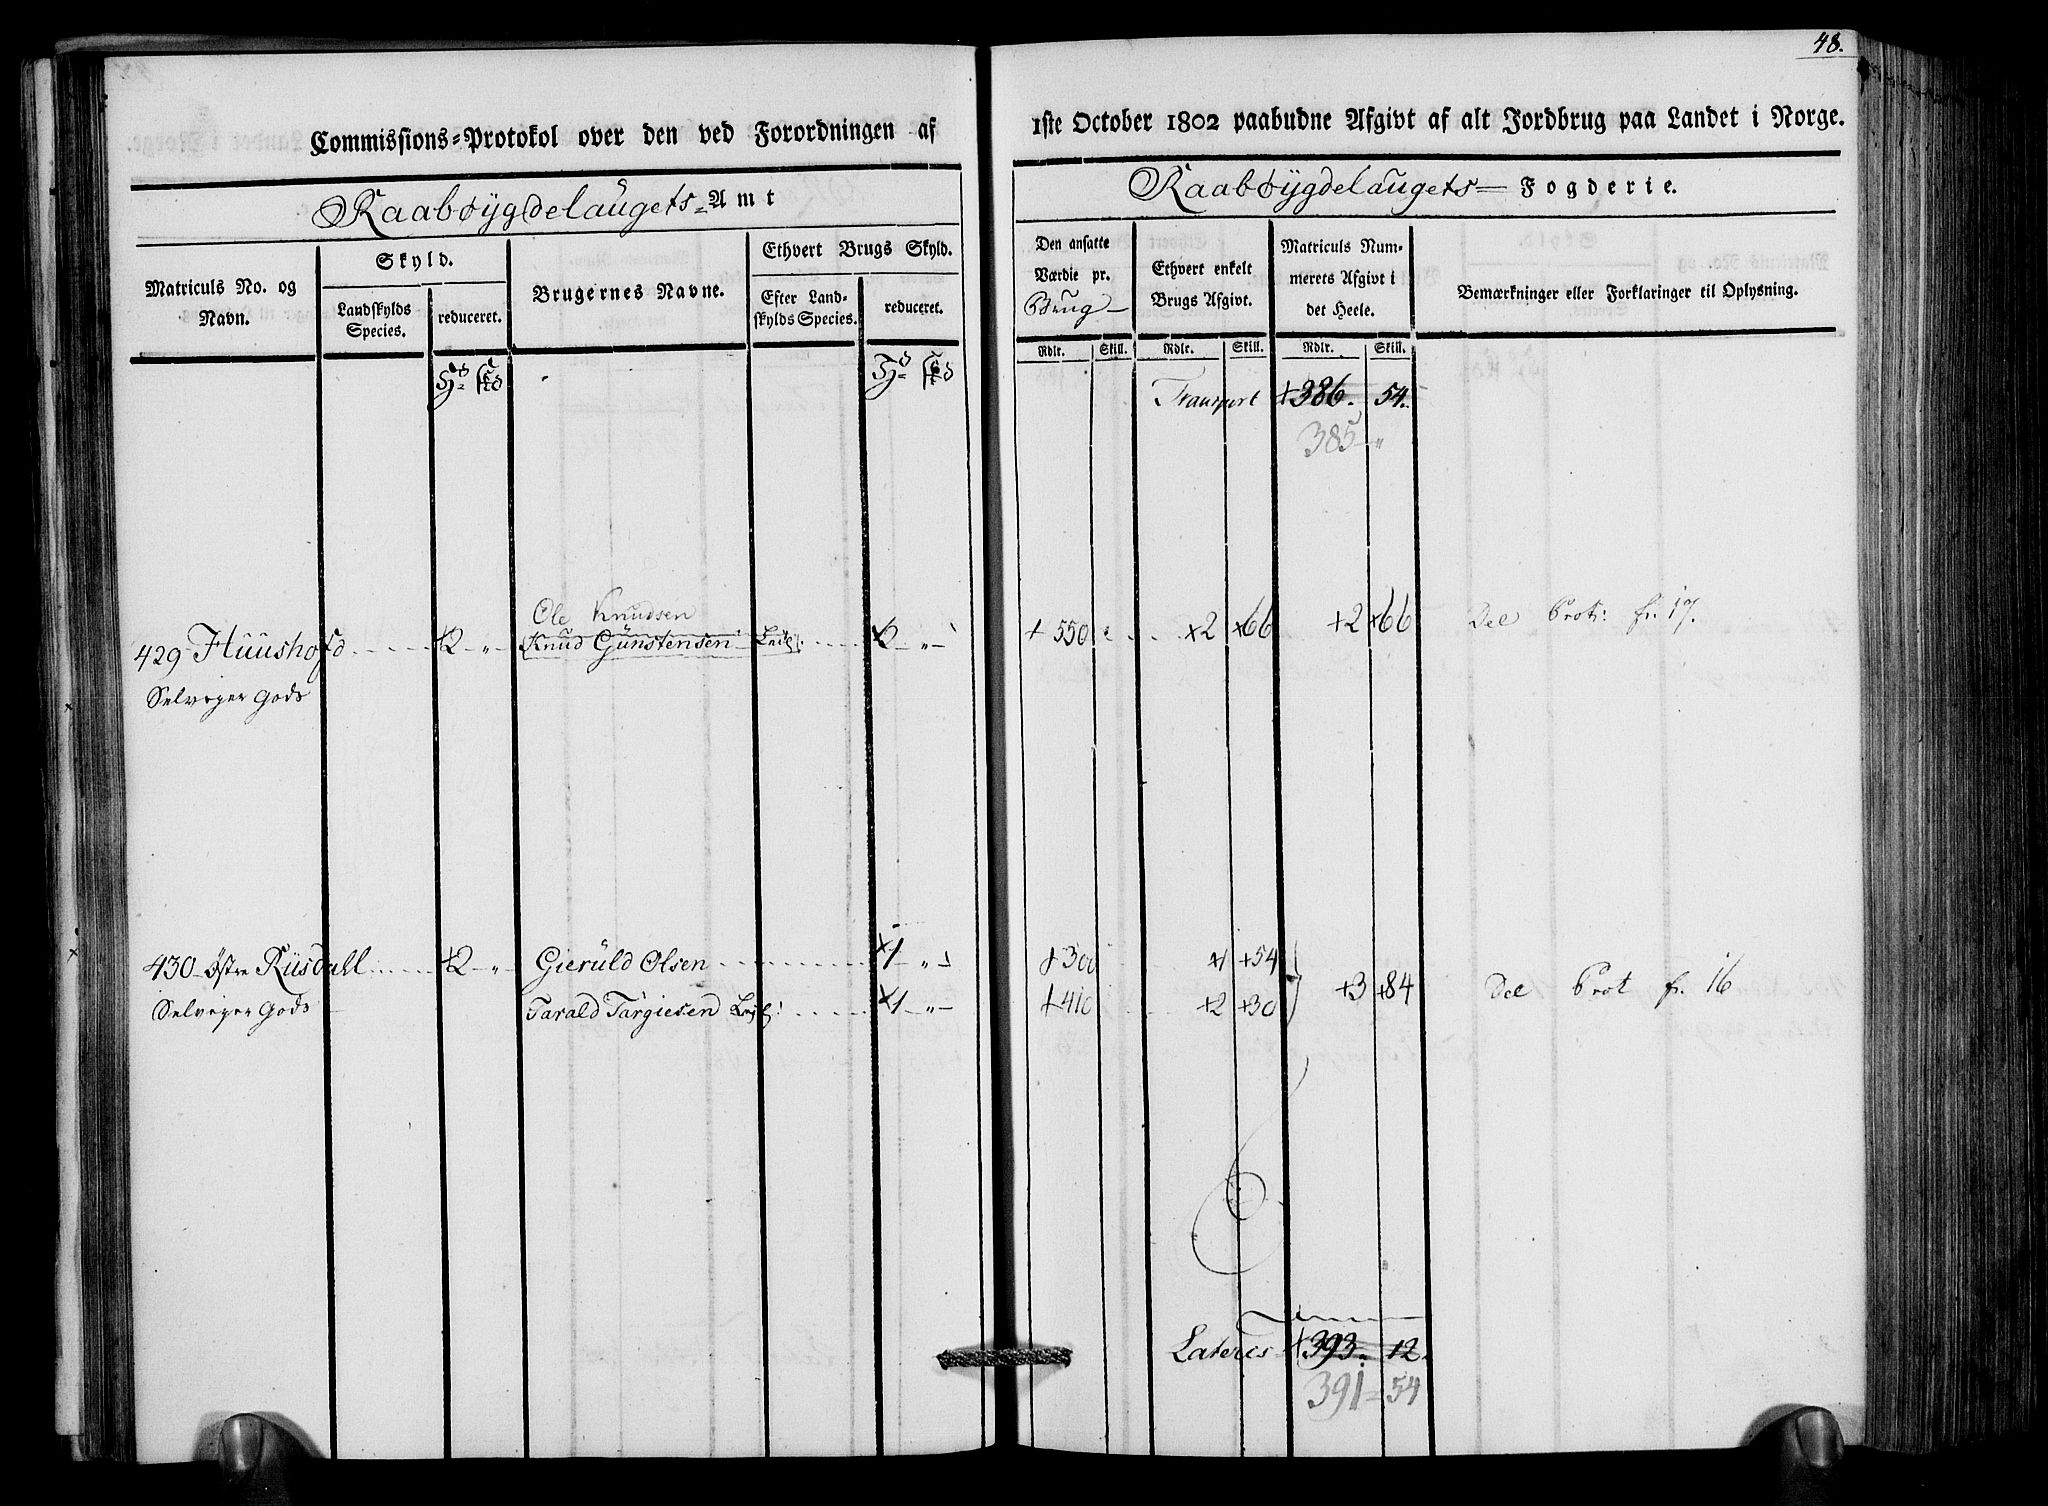 48.
Commissions=Protokol over den ved Forordningen af 1ste October 1802 paabudne Afgivt af alt Jordbrug paa Landet i Norge.
Raabøygdelaugets=Amt
Raabøygdelaugets Fogderie.
Matriculs No. og Navn.
Skyld.
Landskylds Species.
reduceret.
Brugernes Navne.
Ethvert Brugs Skyld.
Efter Landskylds Species.
reduceret.
Den ansatte Værdie pr. Brug
Ethvert enkelt Brugs Afgivt.
Matriculs Nummerets Afgivt i det Heele.
Bemærkninger eller Forklaringer til Oplysning.
Rdlr. Skill. Rdlr. Skill. Rdlr. Skill.
Transport +386. 54.
385 "
Ole Knudsen
429 Huushofd +2 " Knud Gunstensen 2 " + 550 ×2 ×66 +2 ×66 Del Prot: fr. 17.
Selveyer Gods
430 Østre Riisdahl +2 " Gieruld Olsen ×1 " +300 ×1 +54
+3 +84 Del Prot fr. 16
Selveyer Gods Tarald Targiesen ×1 " +410 +2 +30
Lateris +393. 12.
391 = 54